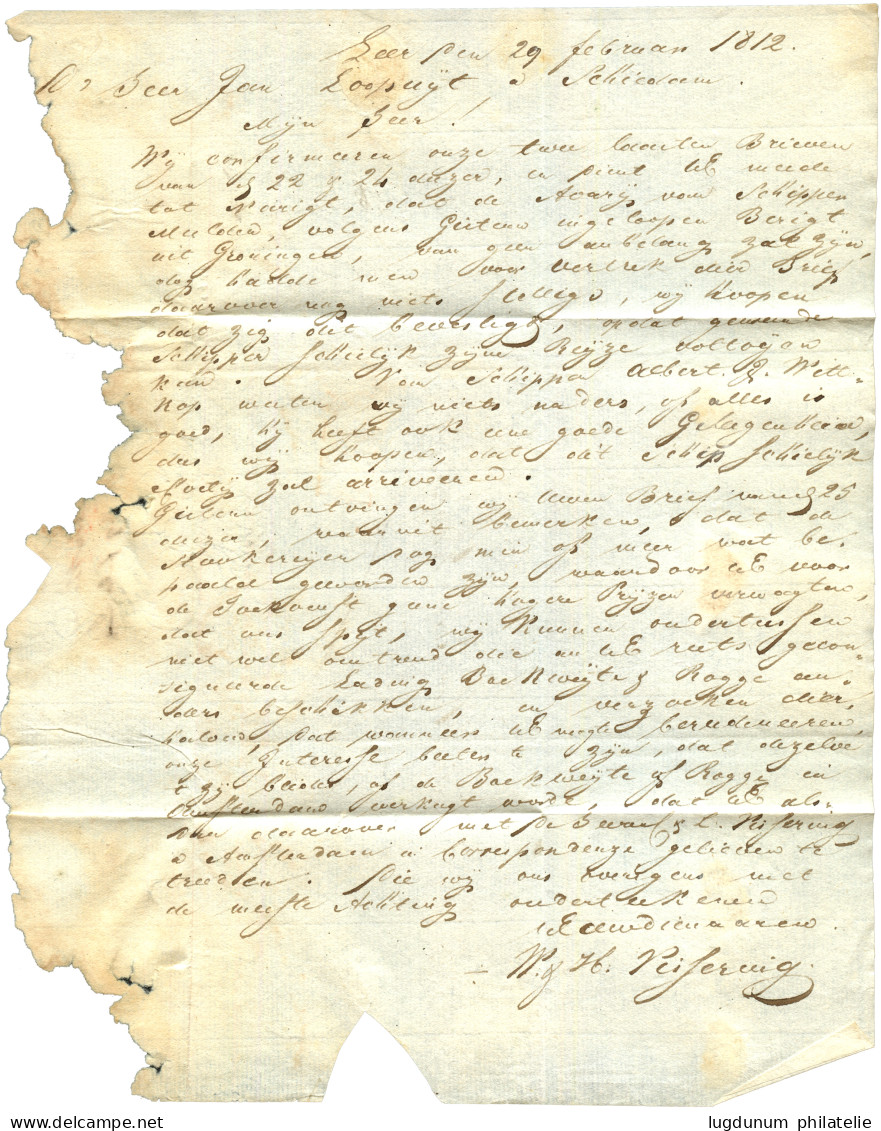 Leer den 29 februari 1812.
Heer Jan Loopuijt a Schiedam.
Mijn Heer!
Wij confirmeeren onze twee laasten Brieven
van d 22 & 24 dezer, en dient UE meede
tot narigt, dat de Avarij van Schipper
Mulder, volgens Gisteren ingeloopen Berigt
uit Groningen, van geen anbelang zal zijn,
dog hadde men voor vertrek dier Brief
daarover nog niets stelligs, wij hoopen
dat zig dit bevestigt, opdat gemelde
Schipper schielijk zijne Reijze voltoijen
kan. Van Schipper Albert J. Witt-
kop weten wij niets naders, of alles is
goed, hij heeft ook eene goede Gelegenheid,
dus wij hoopen, dat dit Schip schielijk
zal arriveeren.
Gistern ontvingen wij Uwen Brief van d 25
dezer, waaruit bemerken, dat de
min of meer wat be-
paalde geworden zijn, waardoor UE voor
de Toekomst geene hogere Prijzen verwagten,
dat ons spijt, wij kunnen ondertussen
niet wel omtrend die an UE reets gecon-
signeerde Lading Boekweijte & Rogge an-
ders beschikken, en verzoeken dier-
halven, dat wanneer UE mogte
onze Interesse beeter te zijn, dat dezelve
of de Boekweijte of Rogge in
Amsterdam verkogt wordt, dat UE als-
dan daarover met de Heeren & L. Vissering
a Amsterdam in Correspondenze gelieven te
treeden. Die wij ons overigens met
de meeste Achting onderteekenen
UE ewdienaaren
W. & H. Vissering.
lugdunum philatelie